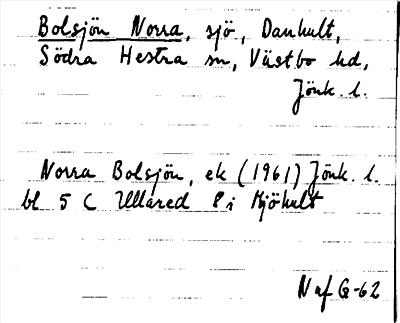 Bolsjön Norra, sjö, Dankult,
Södra Hestra sn, Västbo hd,
Jönk. l.
Norra Bolsjön, ek (1961) Jönk. l.
bl 5 C Ullared 8 i Mjöhult
N af G-62